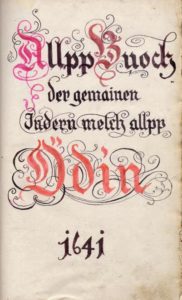 Allpp Buoch
der gemainen
Indern melch allpp
Ödin
1641